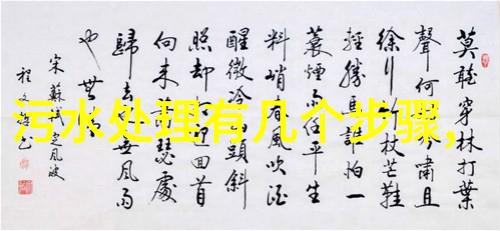 污水处理有几个步骤,
莫聽穿林打葉
聲何嘯且
徐行杖芒鞋
輕勝馬誰怕一
蓑煙雨任平生
料峭春風吹酒
醒微冷頭斜
照却迎回首
向來瑟處
歸去無風雨
也無
宋蘇軾定風波